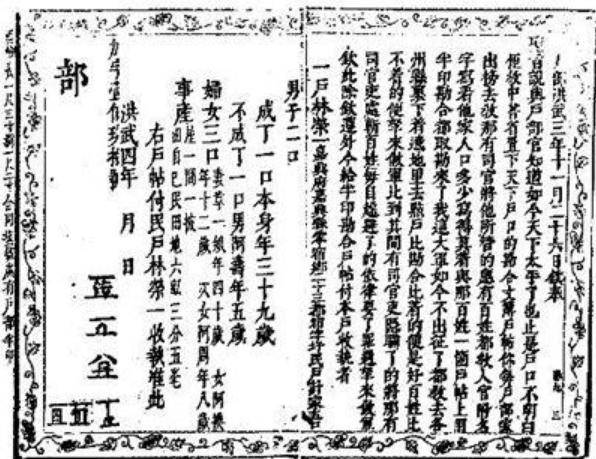 洪武三年十一月二十六日欽奉
聖旨說與戶部官知道如今天下太平了也止是戶口不明白
俚教中書省置下天下戶口的勘合文簿戶帖你每戶部家
出榜去教那有司官將他所管的應有百姓都教入官附名
字寫着他家人口多少寫得真着與那百姓一箇戶帖上用
半印勘合都取勘來了我這大軍如今不出征了都教去各
州縣裏下着遶地里去點戶比勘合比着的便是好百姓比
不着的便拏來做軍比到其間有司官吏隱瞞了的將那有
司官吏處斬百姓每自躱避了的依律要了罪過拏來做軍
欽此除欽遵外今給半印勘合戶帖付本戶收執者
一戶林榮一嘉興府嘉興縣
男子二口
成丁一口本身年三十九歲
不成丁一口男阿壽年五歲
婦女三口
年四十歲 女阿
年十二歲 次女阿周年八歲
事產
屋一間一披
田自己民田地六畝三分五毫
右戶帖付民戶林榮一收執准此
洪武四年 月 日
部